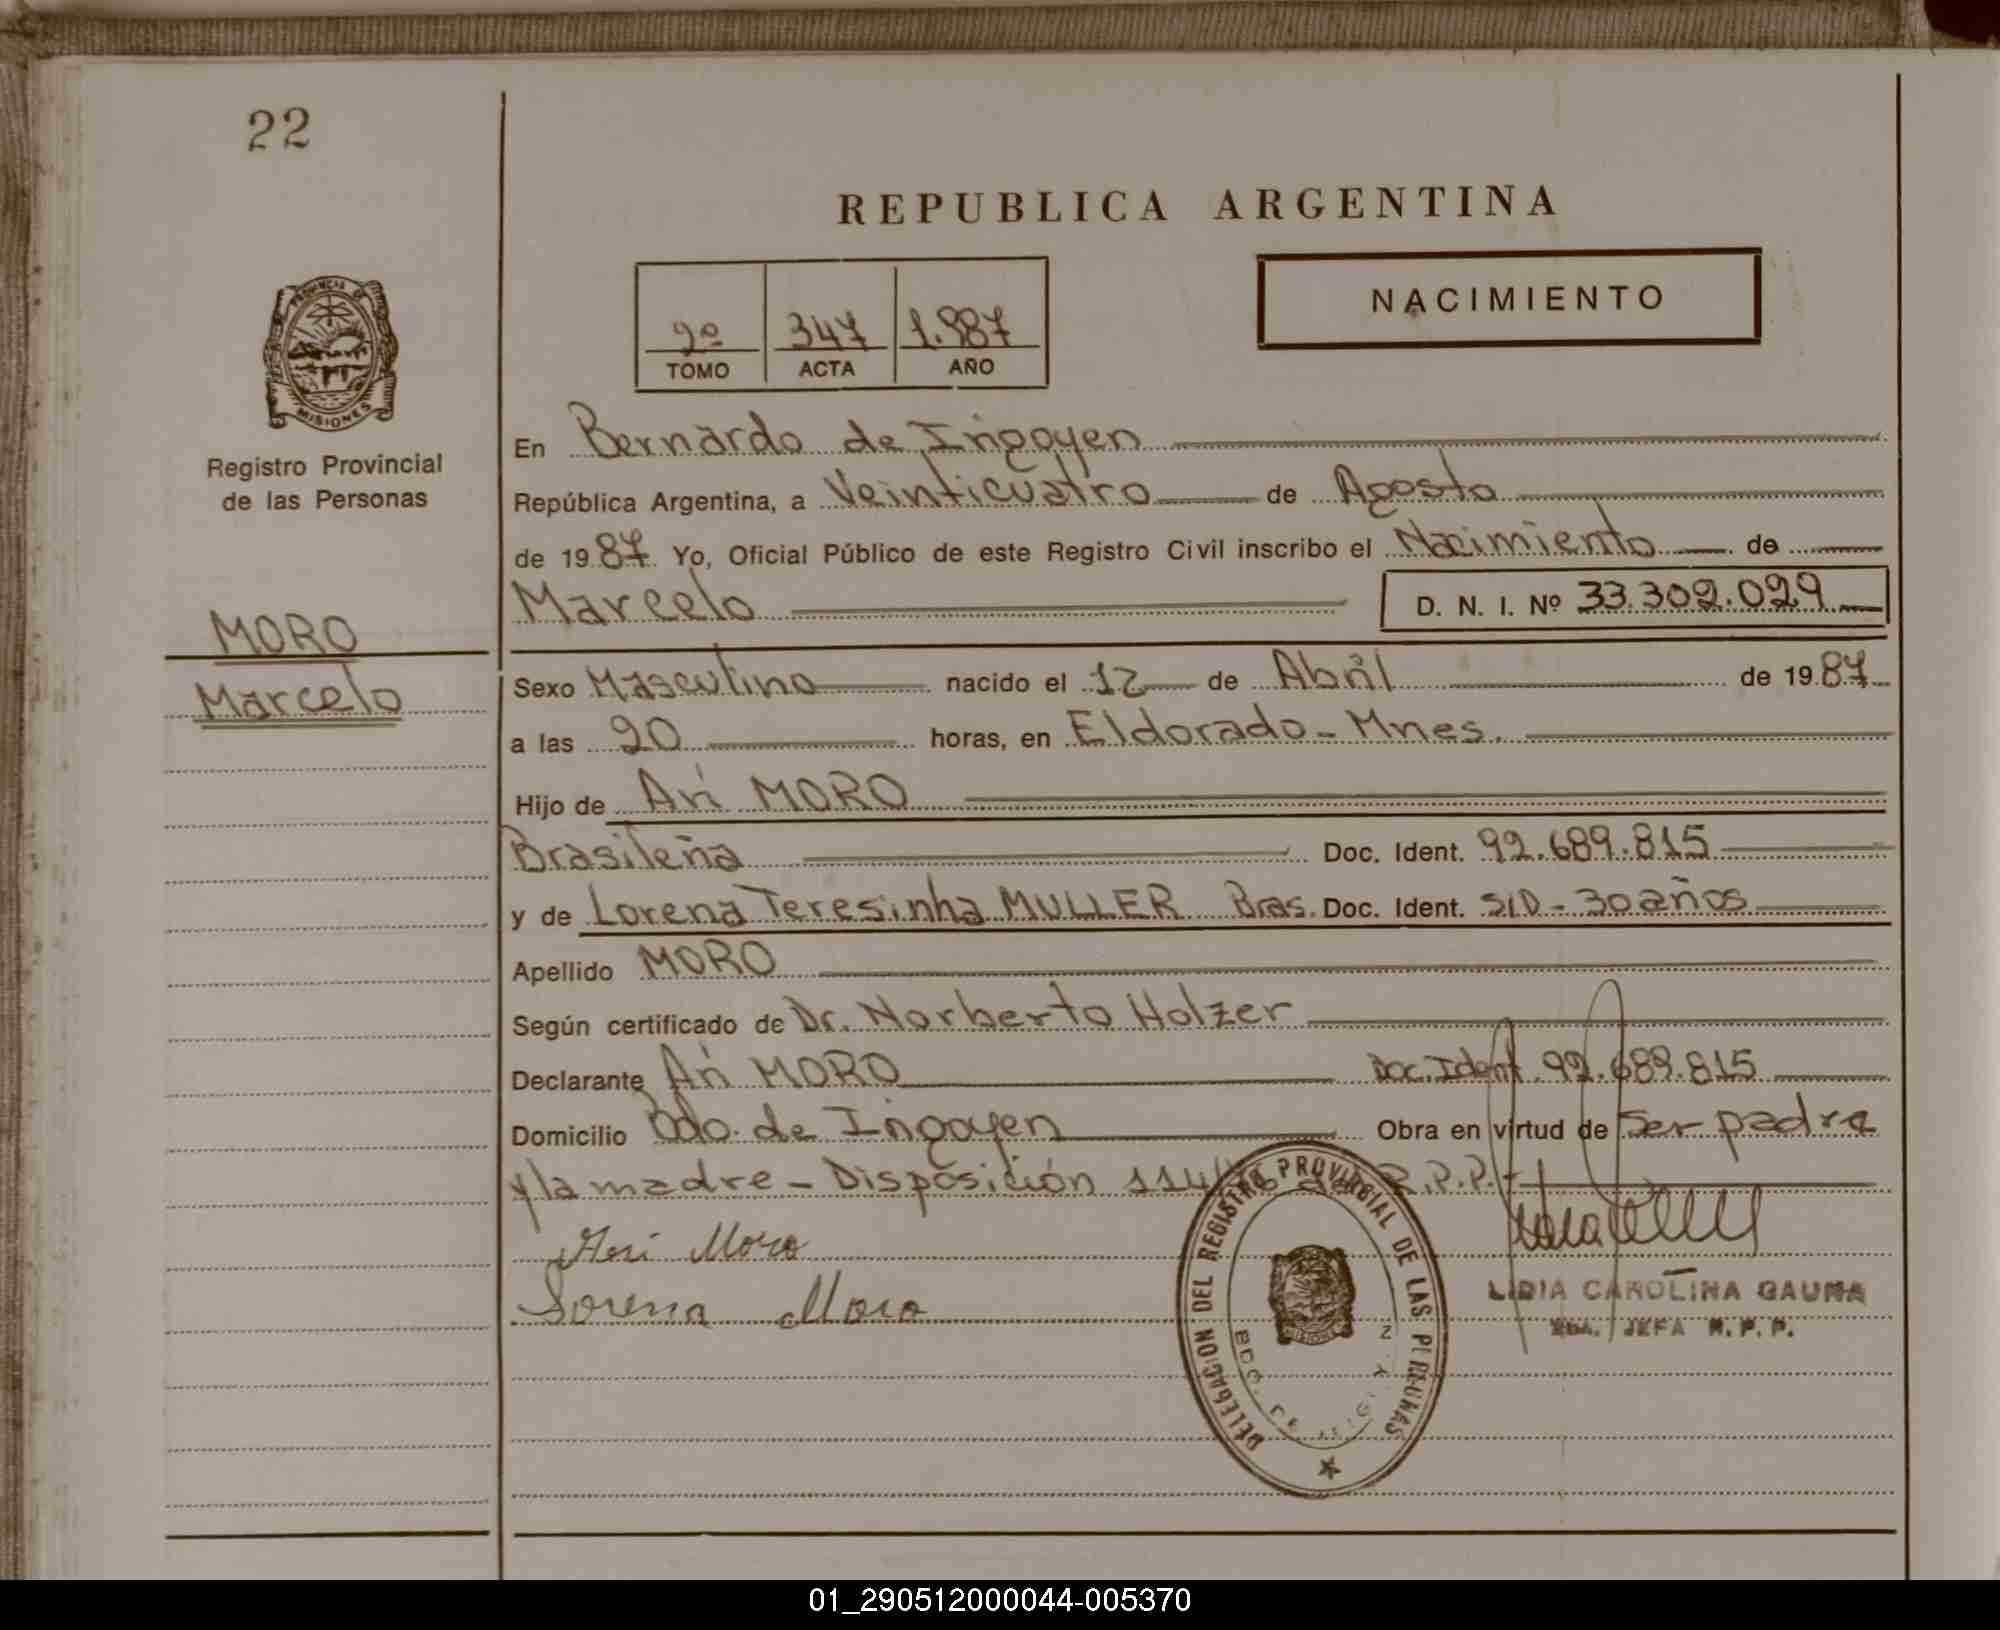 22
REPUBLICA ARGENTINA
NACIMIENTO
2º 347 1.987
TOMO ACTA AÑO
PROVINCIA DE
MISIONES
Registro Provincial
de las Personas
MORO
Marcelo
En Bernardo de Irigoyen
República Argentina, a Veinticuatro de Agosto
de 1987 Yo, Oficial Público de este Registro Civil inscribo el Nacimiento de
Marcelo D. N. I. Nº 33.302.029
Sexo Masculino nacido el 12 de Abril de 1987
a las 20 horas, en Eldorado - Mnes.
Hijo de Ari MORO
Brasileña Doc. Ident. 92.689.815
y de Lorena Teresinha MULLER Bras. Doc. Ident. S/D - 30 años
Apellido MORO
Según certificado de Dr. Norberto Holzer
Declarante Ari MORO Doc. Ident. 92.689.815
Domicilio Bdo. de Irigoyen Obra en virtud de ser padre
y la madre - Disposición 114 R.P.P.-
Ari Moro
Lorena Moro
DELEGACION DEL REGISTRO PROVINCIAL DE LAS PERSONAS
BDO. DE
LIDIA CAROLINA GAUNA
JEFA R. P. P.
01_290512000044-005370